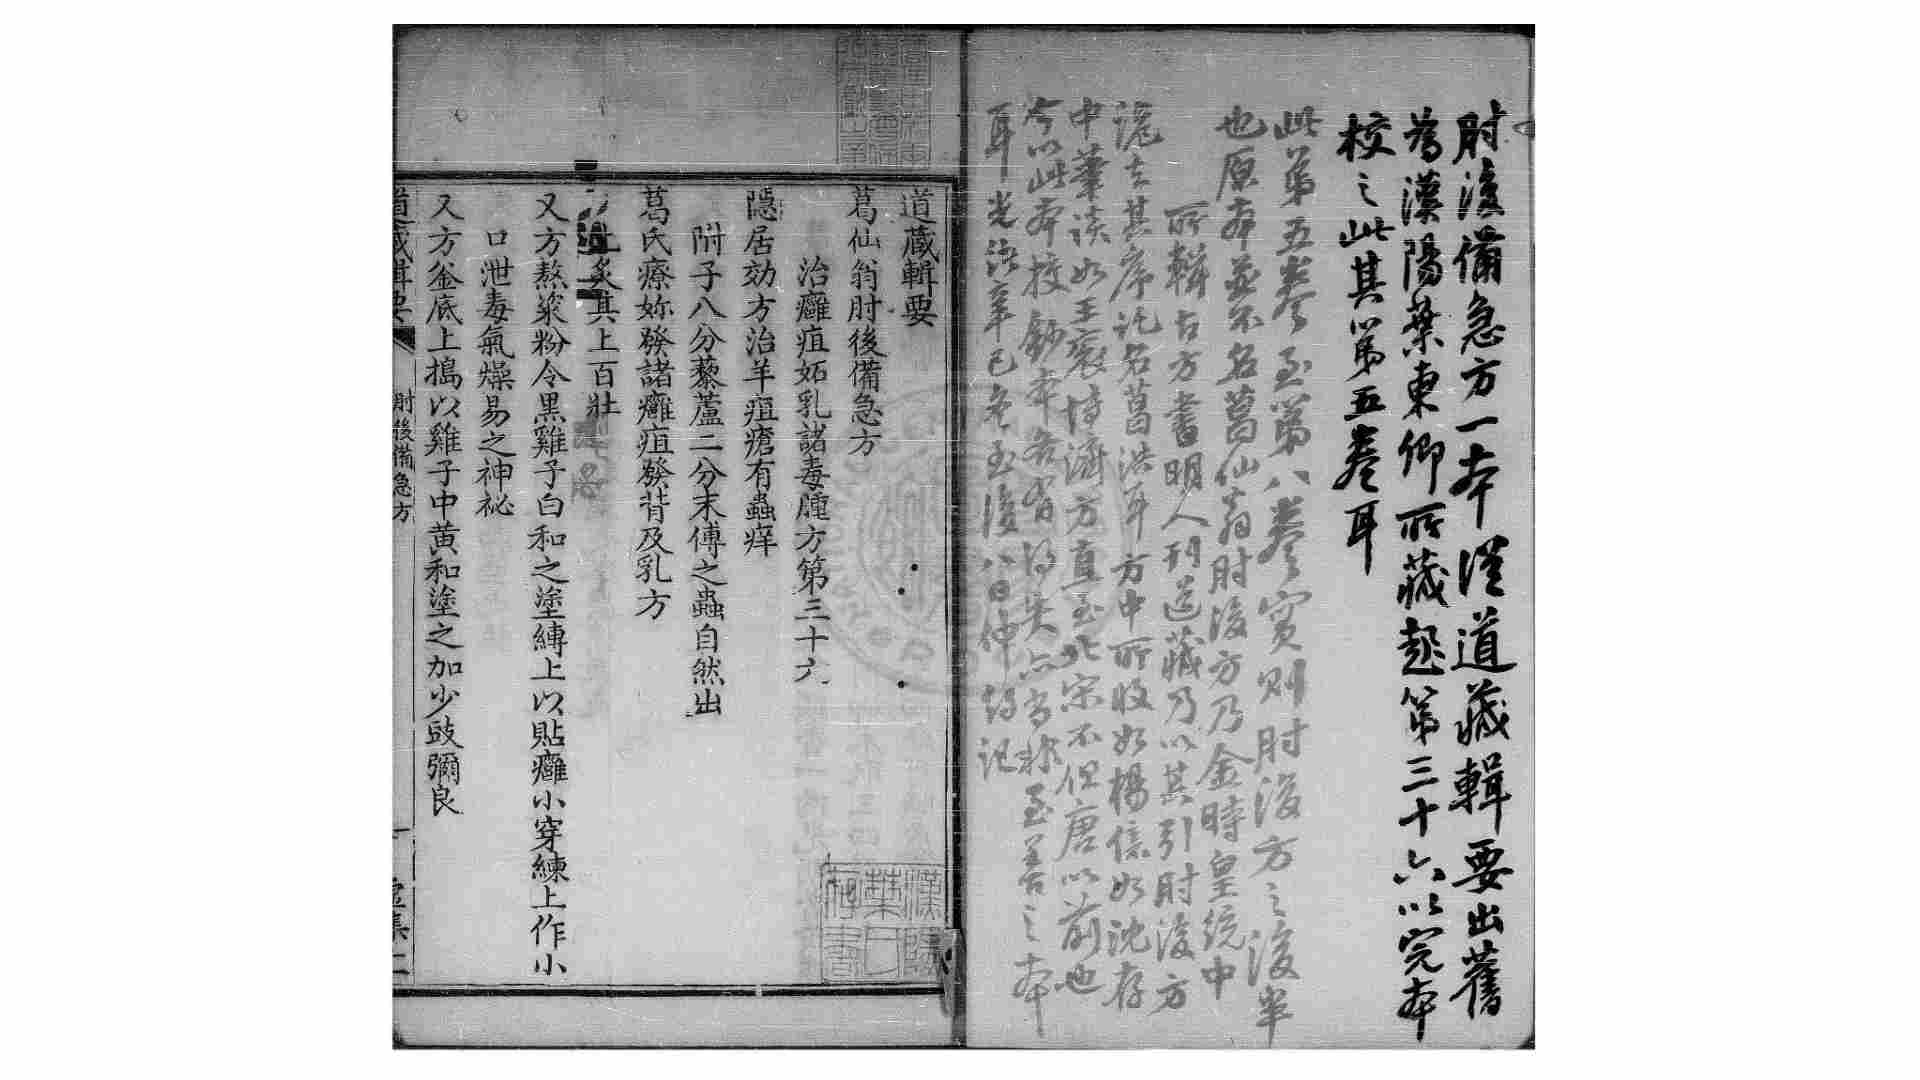 肘後備急方一本從道藏輯要出舊
為漢陽葉東卿所藏起第三十六以完本
校之此其第五卷耳
此第五卷至第八卷實則肘後方之後半
也原本並不名葛仙翁肘後方乃金時皇統中
所輯古方書明人刊道藏乃以其引肘後方
其序託名葛洪耳方中所收如楊信如沈存
中筆談如王袞博濟方直至北宋不但唐以前也
今以此本校鈔本各有得失亦尚非至善之本
耳光緒辛巳冬至後八日仲 記
道藏輯要
葛仙翁肘後備急方
治癰疽妬乳諸毒腫方第三十六
隱居効方治羊疽瘡有蟲痒
附子八分藜蘆二分末傅之蟲自然出
葛氏療妳發諸癰疽發背及乳方
炙其上百壯
又方熬粢粉令黑雞子白和之塗縳上以貼癰小穿練上作小
口泄毒氣燥易之神祕
又方釜底上搗以雞子中黄和塗之加少豉彌良
道藏輯要
肘後備急方
一
虛集二
漢陽葉氏藏書